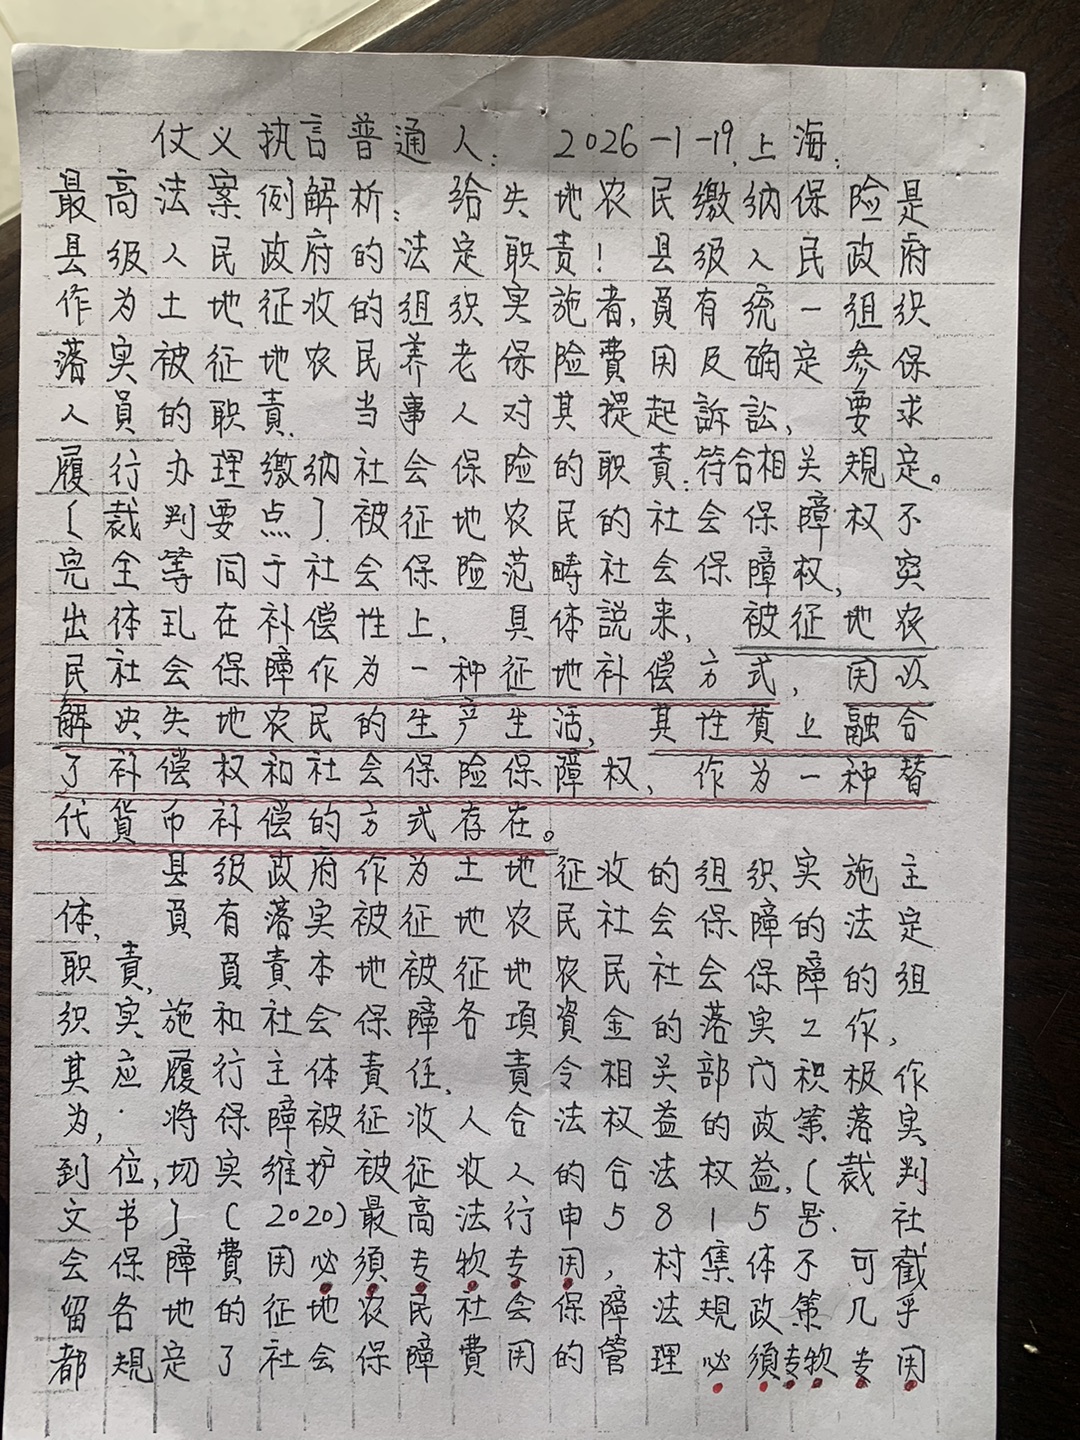 仗义执言普通人: 2026-1-19.上海.
最高法案例解析: 给失地农民缴纳保险是
县级人民政府的法定职责! 县级人民政府
作为土地征收的组织实施者,負有统一组织
落实被征地农民养老保险費用及确定参保
人員的职責. 当事人对其提起訴訟, 要求
履行办理缴纳社会保险的职責.符合相关規定。
[裁判要点] 被征地农民的社会保障权不
完全等同于社会保险范畴社会保障权, 突
出体现在补偿性上, 具体説来, 被征地农
民社会保障作为一种征地补偿方式, 用以
解决失地农民的生产生活, 其性質上融合
了补偿权和社会保险保障权, 作为一种替
代貨币补偿的方式存在。
县级政府作为土地征收的组织实施主
体, 負有落实被征地农民社会保障的法定
职責, 負責本地被征地农民社会保障的组
织实施和社会保障各項資金的落实工作,
其应履行主体責任, 責令相关部门积极作
为, 将保障被征收人合法权益的政策落实
到位,切实維护被征收人的合法权益,[裁判
文书] (2020)最高法行申5815号. 社
会保障費用必須专物专用, 村集体不可截
留各地的征地农民社会保障法規政策几乎
都規定了社会保障費用的管理必須专物专用